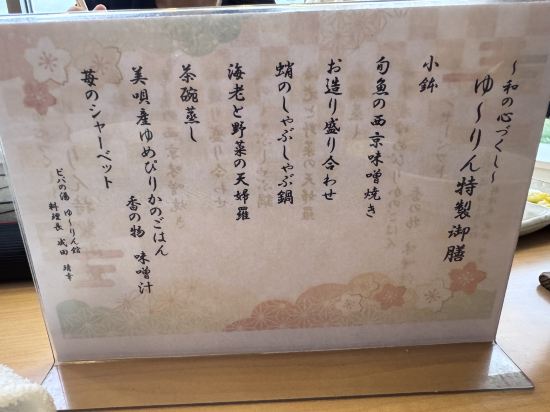 ～和の心づくし～
ゆ～りん特製御膳
小鉢
旬魚の西京味噌焼き
お造り盛り合わせ
蛸のしゃぶしゃぶ鍋
海老と野菜の天婦羅
茶碗蒸し
美唄産ゆめぴりかのごはん
香の物 味噌汁
苺のシャーベット
ピパの湯 ゆ～りん館
料理長 成田 靖幸